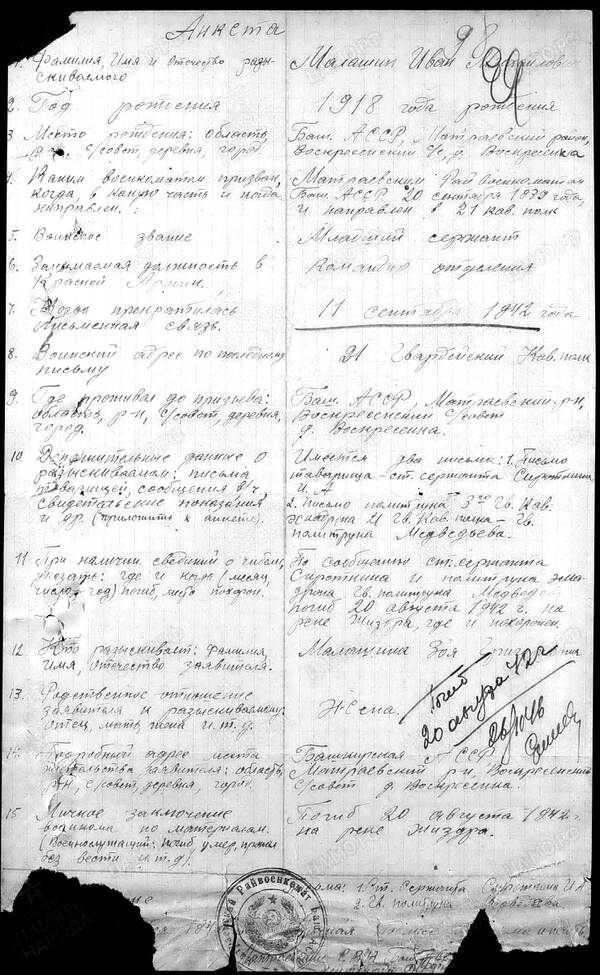 Анкета
98
1. Фамилия, Имя и Отчество разы-
скиваемого
Малашин Иван
2. Год рождения
1918 года рождения
3. Место рождения: область,
с/совет, деревня, город.
Баш. АССР, Матраевский район,
Воскресенский с/с, д. Воскресенка
4. Каким военкоматом призван,
когда, в какую часть и когда
направлен.
Матраевским Райвоенкоматом
Баш. АССР 20 сентября 1939 года,
и направлен в 21 кав. полк
5. Воинское звание
Младший сержант
6. Занимаемая должность в
Красной Армии.
Командир отделения
7. Когда прекратилась
письменная связь.
11 сентября 1942 года
8. Воинский адрес по последнему
письму
21 Гвардейский Кав. полк
9. Где проживал до призыва:
область, р-н, с/совет, деревня,
город.
Баш. АССР, Матраевский р-н,
Воскресенский с/совет
д. Воскресенка.
10. Дополнительные данные о
разыскиваемом: письма
товарищей, сообщения в/ч,
свидетельские показания
и др. (приложить к анкете).
Имеется два письма: 1. Письмо
товарища - ст. сержанта Сироткина
И. А
2. письмо политрука 3го Гв. Кав.
эскадрона 21 Гв. Кав. полка - Гв.
политрука Медведьева.
11. При наличии сведений о гибели,
указать: где и когда (месяц,
число, год) погиб, либо похорон.
По сообщению ст. сержанта
Сироткина и политрука эска-
дрона Гв. политрука Медведева
погиб 20 августа 1942 г. на
реке Жиздра, где и похоронен.
12. Кто разыскивает: фамилия,
имя, отчество заявителя.
Малашина Зоя
13. Родственное отношение
заявителя к разыскиваемому:
отец, мать, жена и т. д.
Жена.
Погиб
20 августа 42г
26/X 46
14. Подробный адрес места
жительства заявителя: область,
р-н, с/совет, деревня, город.
Башкирская АССР
Матраевский р-н, Воскресенский
с/совет д. Воскресенка.
15. Личное заключение
военкома по материалам.
(Военнослужащий: погиб, умер, пропал
без вести и т. д).
Погиб 20 августа 1942 г.
на реке Жиздра.
1. Ст. Сержанта Сироткина И А
2. Гв. политрука
Райвоенкомат